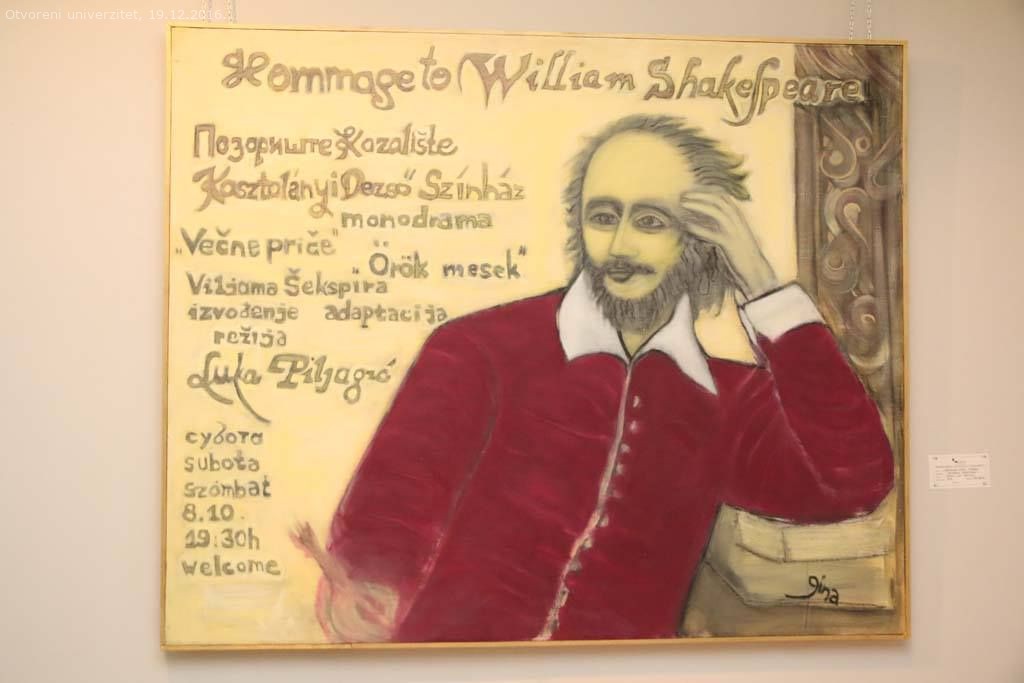 Otvoreni univerzitet, 19.12.2016.
Hommage to William Shakespeare
Позориште Kazalište
Kosztolányi Dezső Színház
monodrama
„Večne priče"
Örök mesek"
Viljama Šekspira
izvođenje adaptacija
režija
Luka Piljagić
субота
subota
szómbat
8.10.
19:30h
welcome
gina